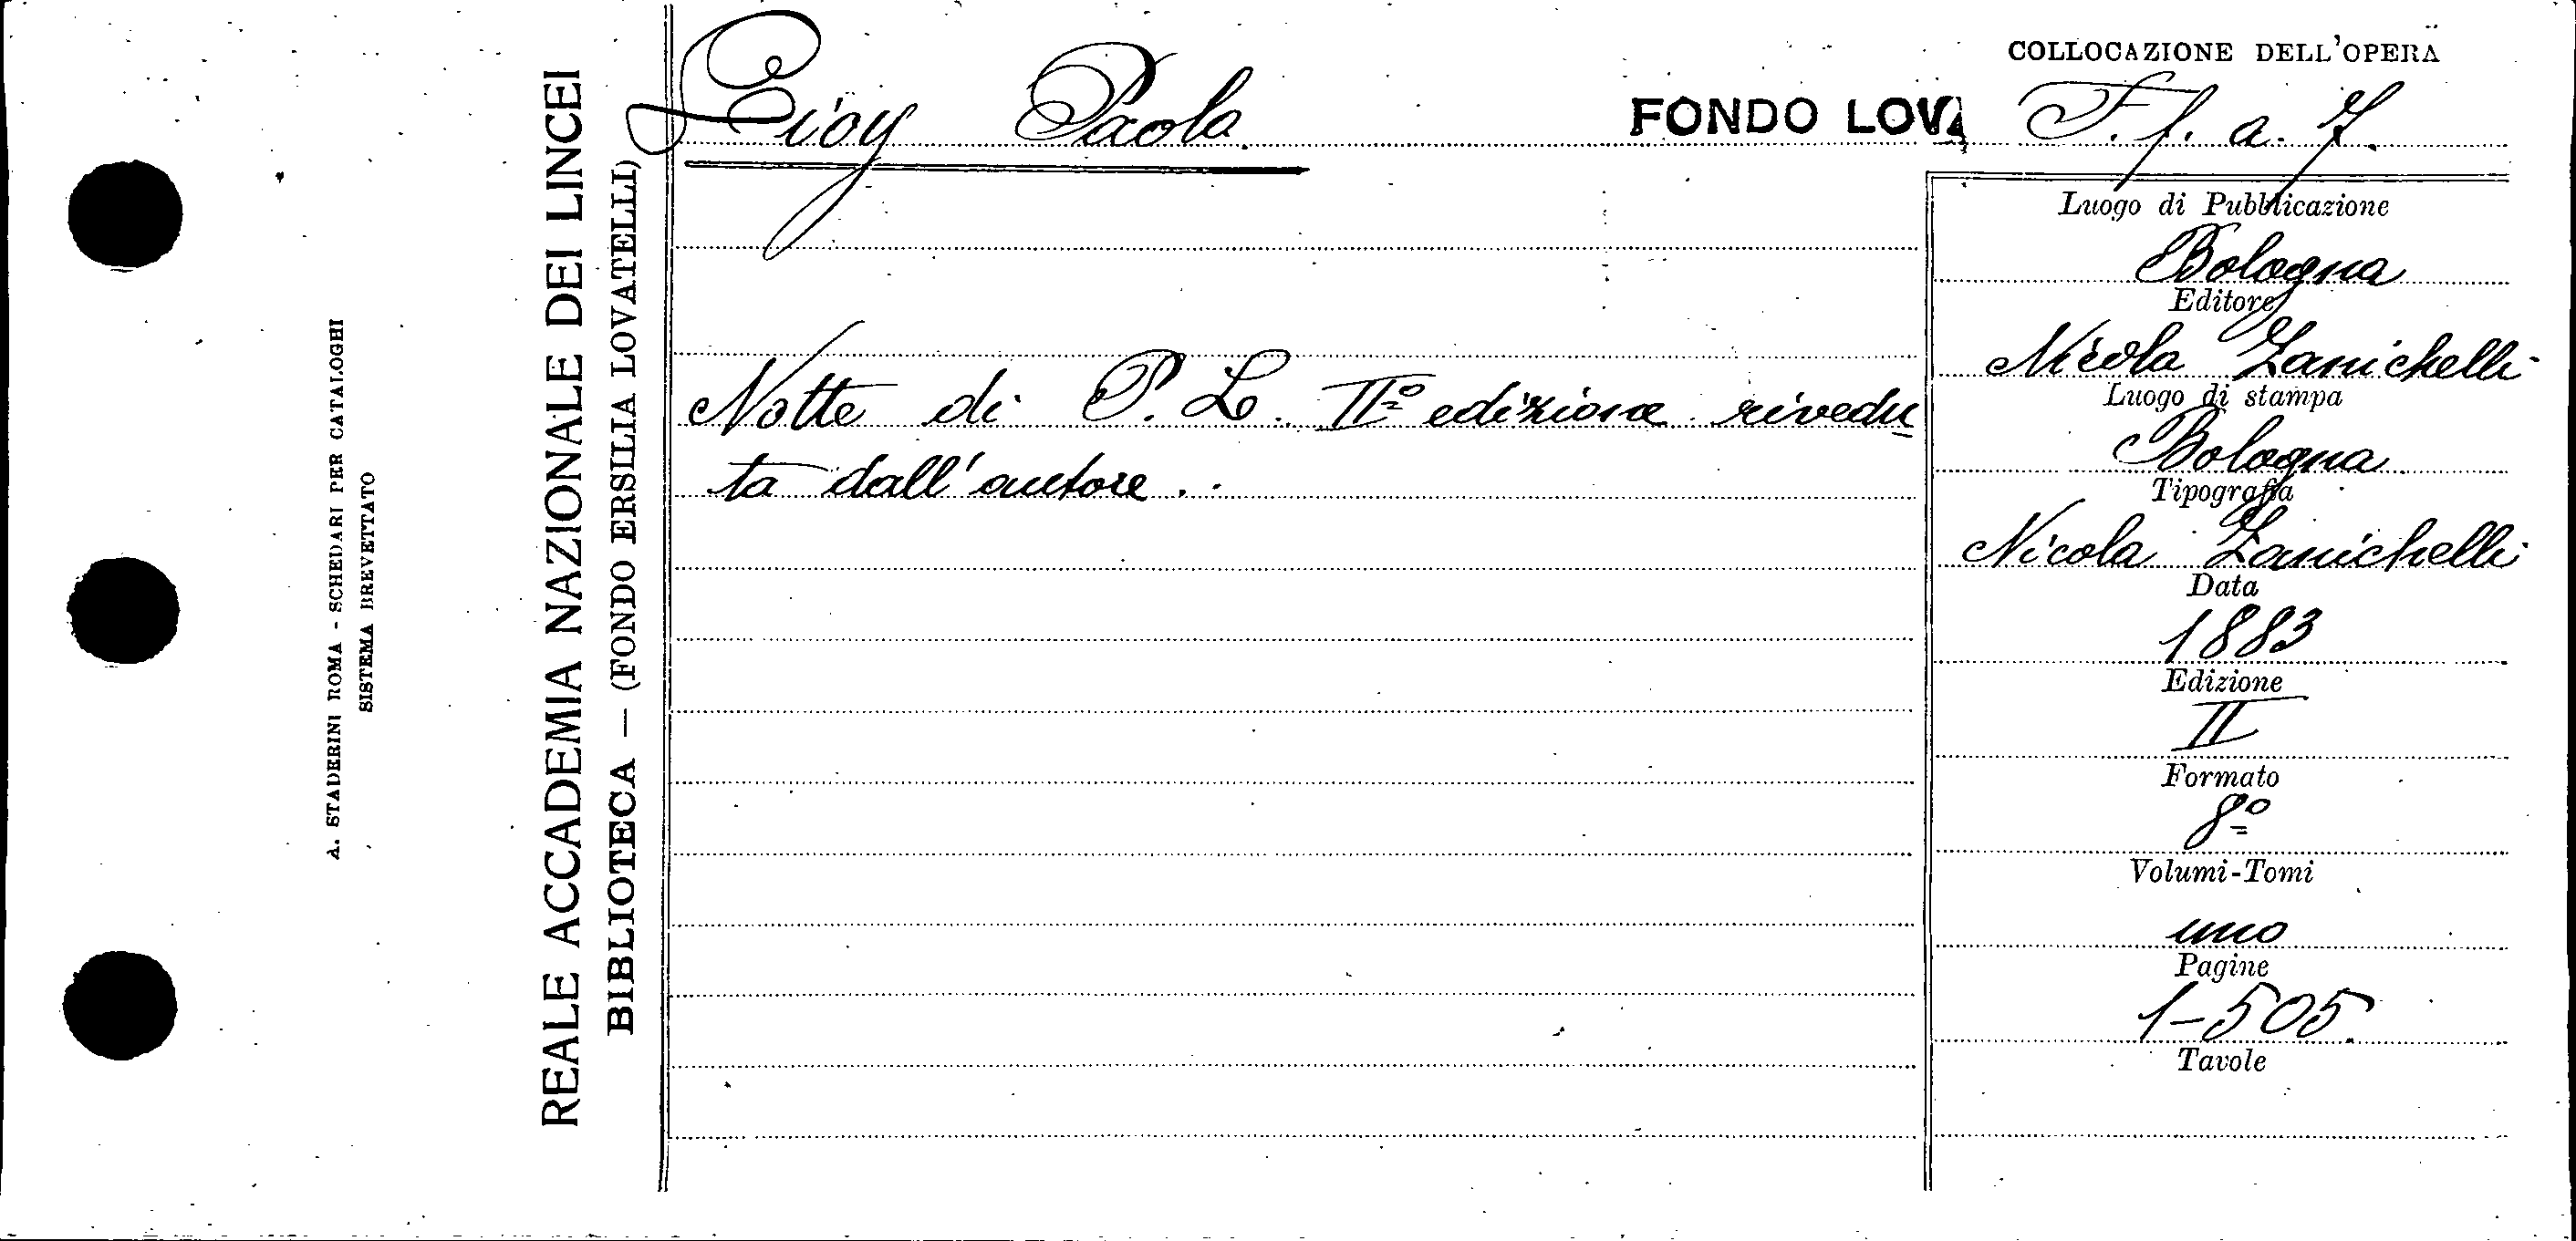 A. STADERINI ROMA - SCHEDARI PER CATALOGHI
SISTEMA BREVETTATO
REALE ACCADEMIA NAZIONALE DEI LINCEI
BIBLIOTECA — (FONDO ERSILIA LOVATELLI)
Lioy Paolo.
FONDO LOVA
Notte di P. L. IIº edizione rivedu
ta dall'autore..
COLLOCAZIONE DELL'OPERA
F. f. a. 7.
Luogo di Pubblicazione
Bologna
Editore
Nicola Zanichelli
Luogo di stampa
Bologna
Tipografia
Nicola Zanichelli
Data
1883
Edizione
II
Formato
8º
Volumi-Tomi
uno
Pagine
1-505.
Tavole